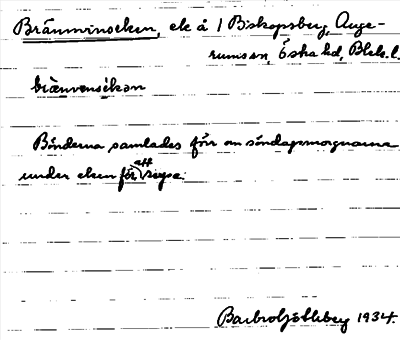 Brännvinseken, ek å 1 Biskopsberg, Auge-
rums sn, Östra hd, Blek. l.
bränvensékan
Bönderna samlades förr om söndagsmorgnarna
under eken för att supa.
Barbro Söderberg 1934.